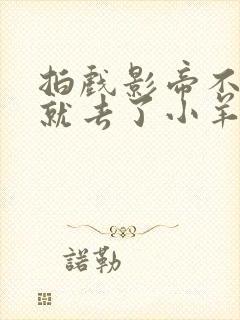 拍戏影帝不
就去了小羊
諾勒